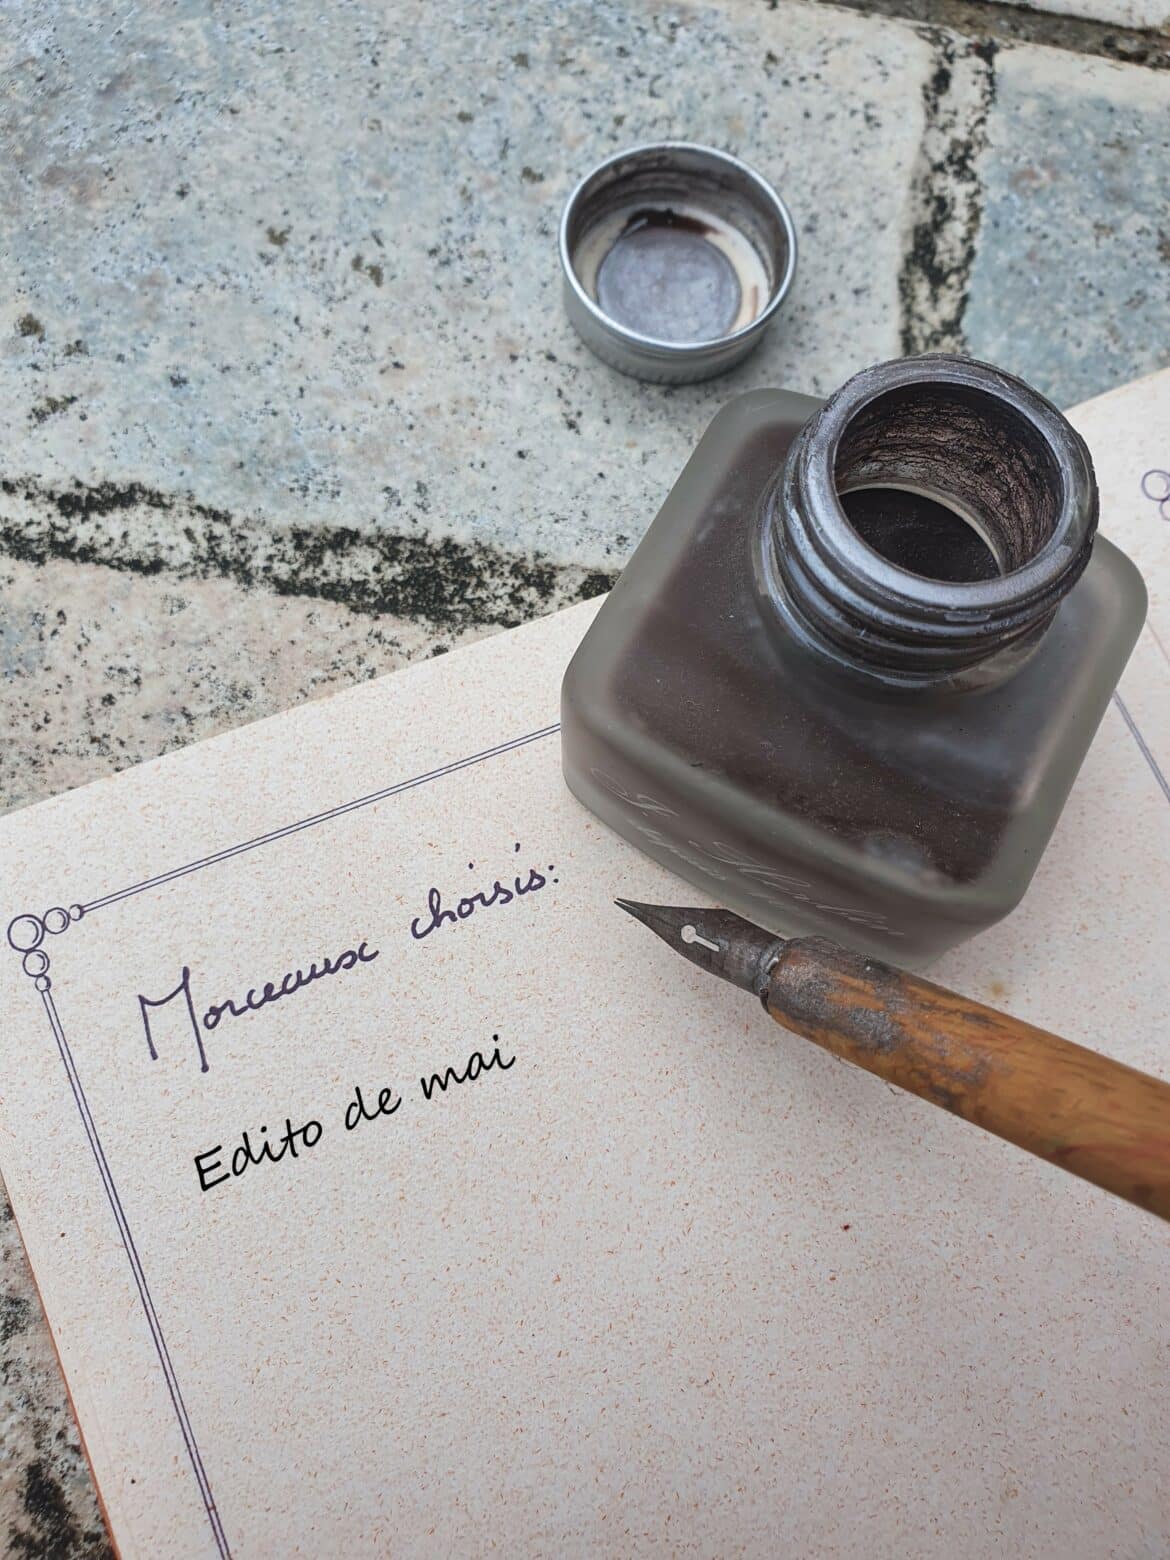 Morceaux choisis:
Edito de mai